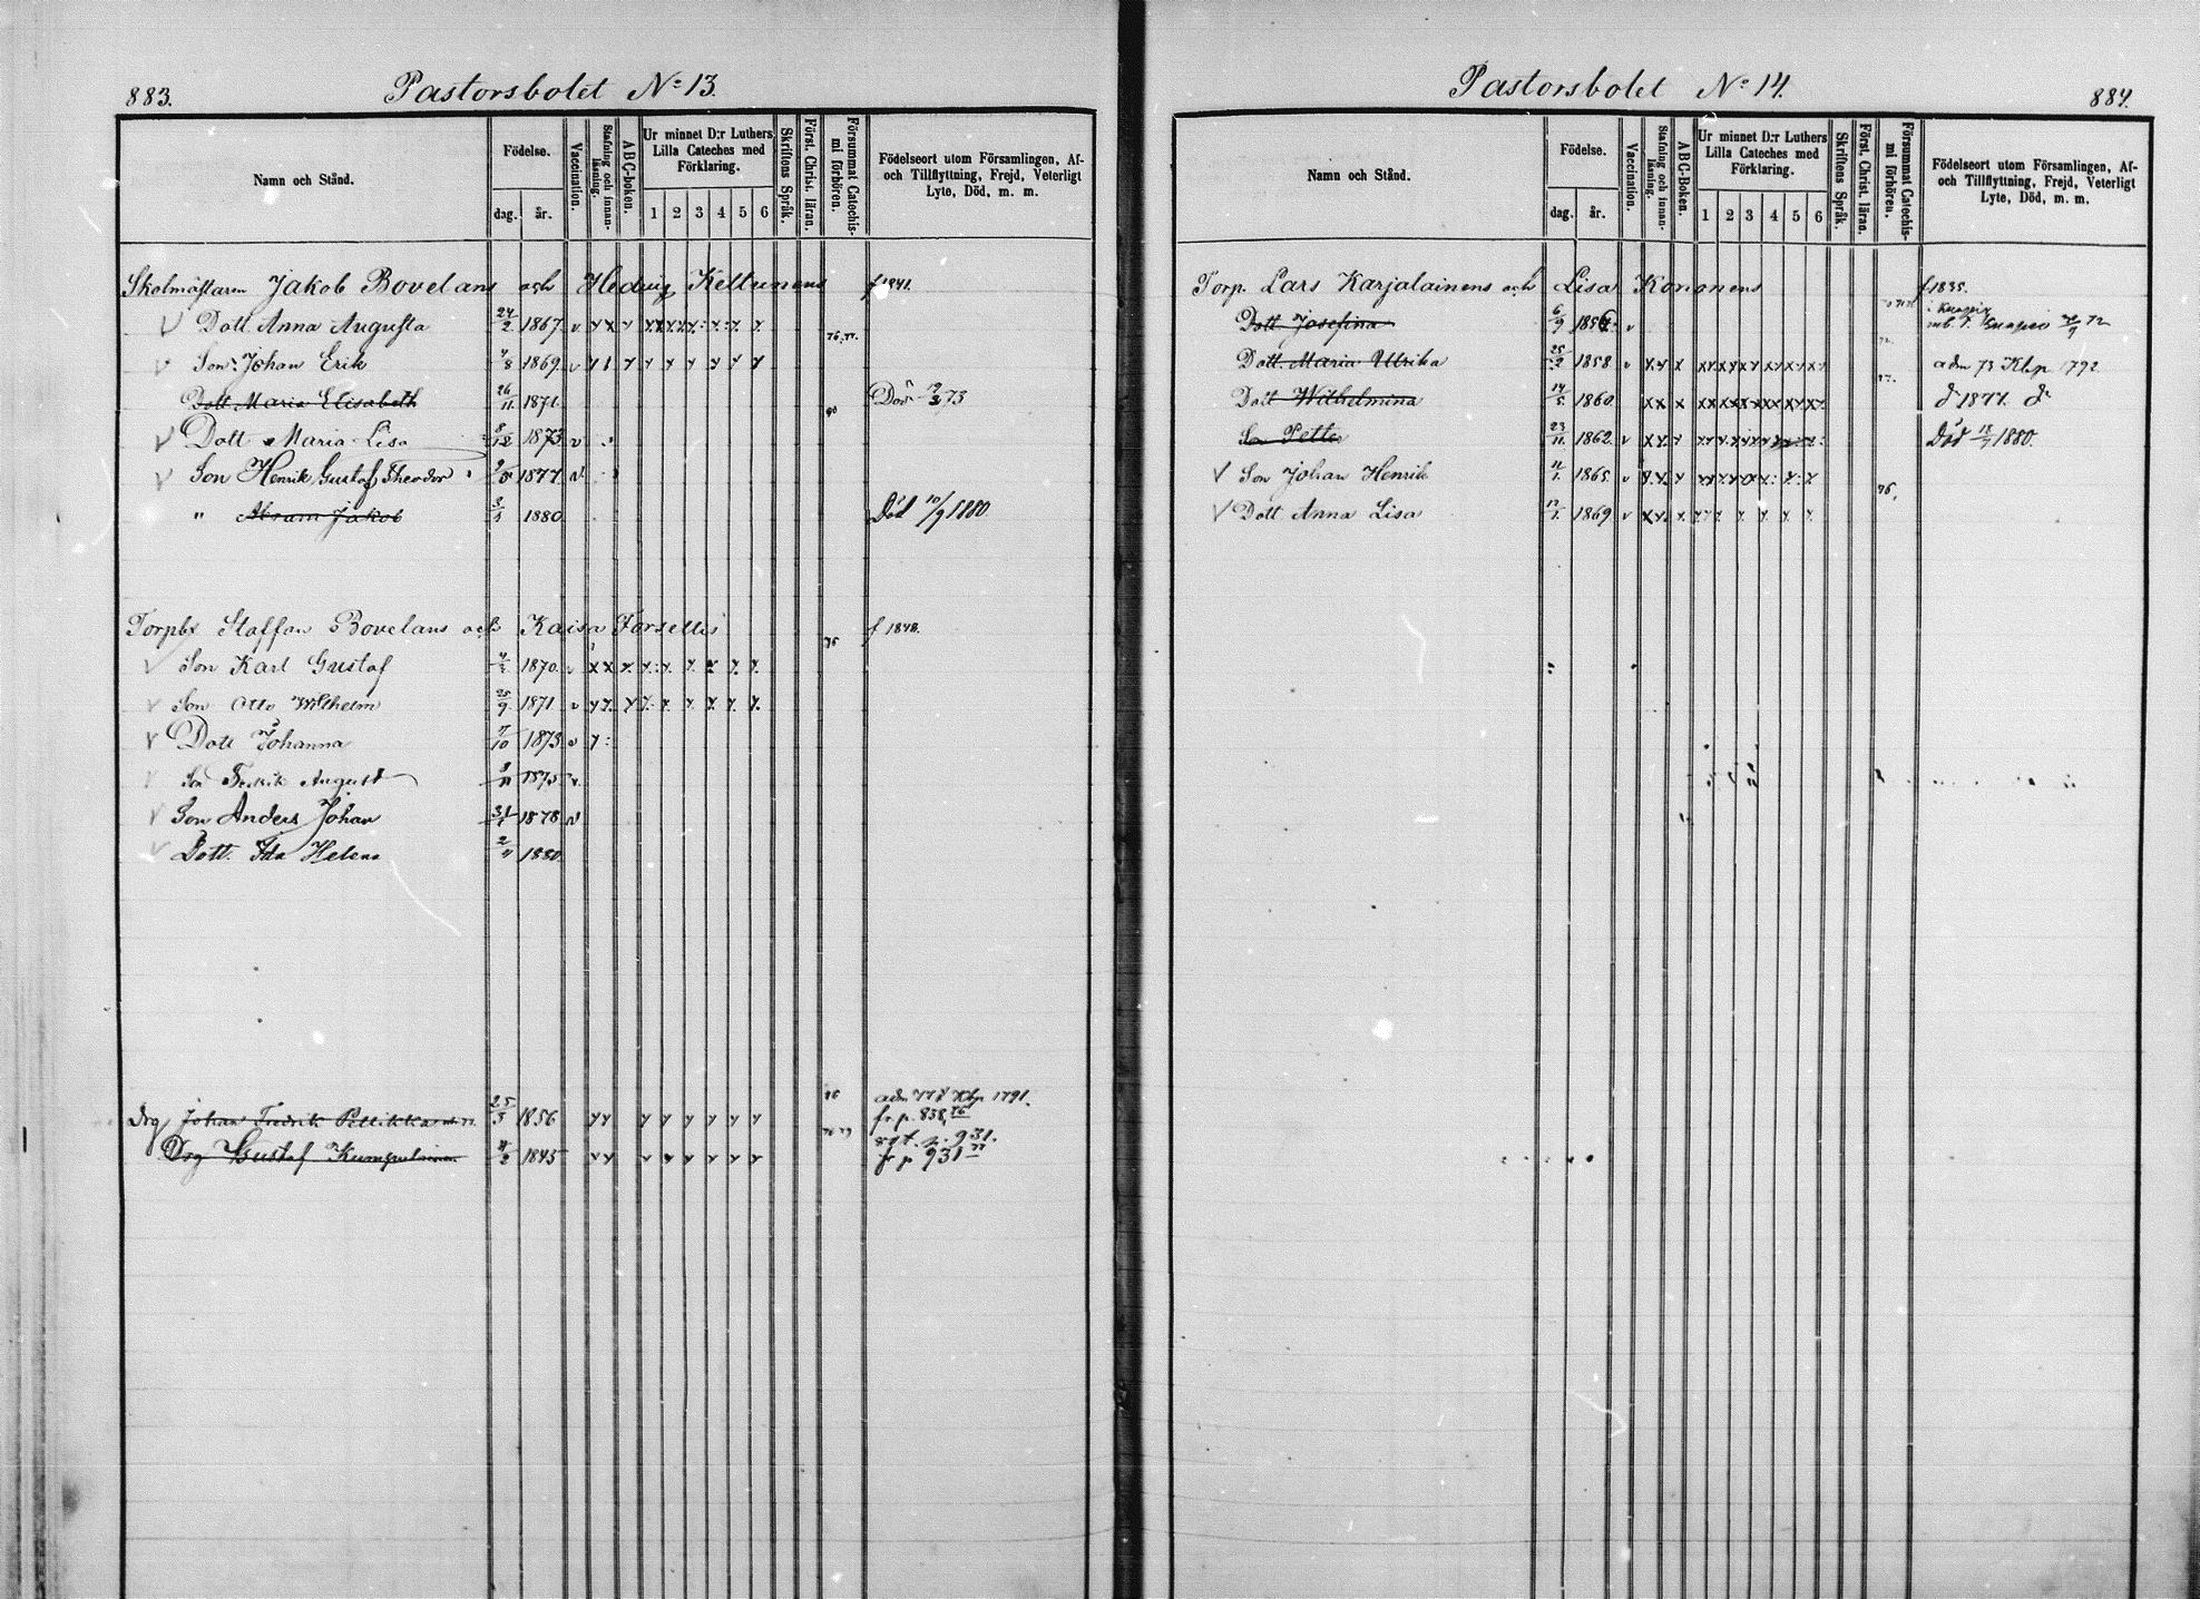 883.
Pastorsbolet No 13.
Namn och Stånd.
Födelse.
dag.
år.
Vaccination.
Stafning och innan-
läsning.
ABC-boken.
Ur minnet D:r Luthers
Lilla Cateches med
Förklaring.
1 2 3 4 5 6
Skriftens Språk.
Först. Christ. läran.
Försummat Catechis-
mi förhören.
Födelseort utom Församlingen, Af-
och Tillflyttning, Frejd, Veterligt
Lyte, Död, m. m.
Skolmästaren Jakob Bovelans och Hedvig Keltunens f 1841.
Dott. Anna Augusta 24/2 1867 v 76, 77.
Son Johan Erik 1869 v
Dott Maria Elisabeth 26/11 1871 Död 73
Dott Maria Lisa 8/12 1873 v 80
Son Henrik Gustaf Theodor 1877
" Abram Jakob 1880 Död 10/9 1880
Torpks Staffan Bovelans och Kaisa Forsellis f 1848.
Son Karl Gustaf 1870
Son Otto Wilhelm 25/9 1871 v
Dott Johanna 1873 v
Son Fredrik August 1875 v
Son Anders Johan 1878
Dott. Ida Helena 1880
Drg Johan Fredrik 25/3 1856 adm Khp 1791.
fr. p. 838
p. 931.
Drg Gustaf 1845 fr p 931
Pastorsbolet No 14.
884.
Namn och Stånd.
Födelse.
dag.
år.
Vaccination.
Stafning och innan-
läsning.
ABC-Boken.
Ur minnet D:r Luthers
Lilla Cateches med
Förklaring.
1 2 3 4 5 6
Skriftens Språk.
Först. Christ. läran.
Försummat Catechis-
mi förhören.
Födelseort utom Församlingen, Af-
och Tillflyttning, Frejd, Veterligt
Lyte, Död, m. m.
Torp. Lars Karjalainens och Lisa Korhonens f 1835.
Dott Josefina 6/9 v 72
Dott. Maria Ulrika 25/2 1858 v adm 73 Khp 1792
Dott Wilhelmina 14/5 1860 d 1877. d
Son Petter 23/11 1862 v Död 18/7 1880.
Son Johan Henrik 11/1 1865 v
Dott Anna Lisa 1869 v 76.